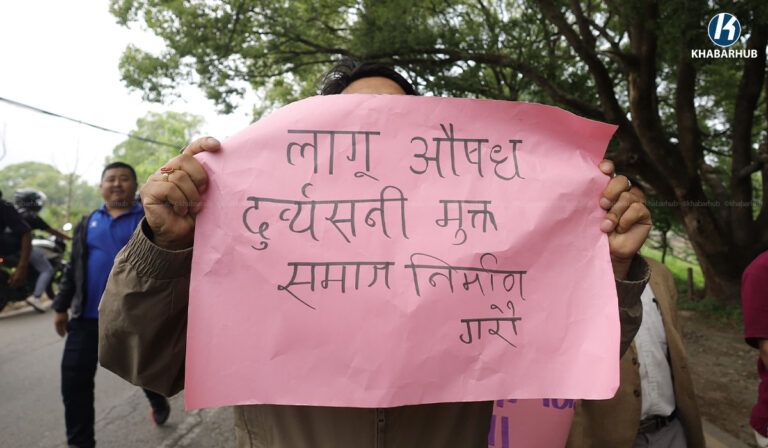 लागू औषध
दुर्व्यसनी मुक्त
समाज निर्माण
गरौ
KHABARHUB